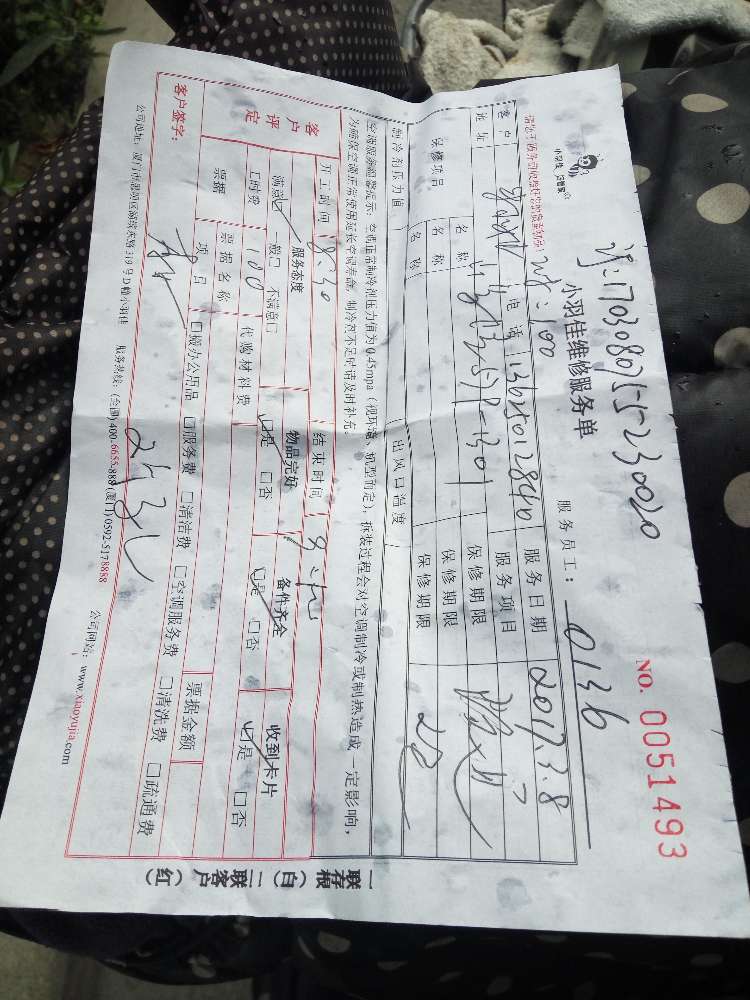 订:17030807555230020
小羽佳维修服务单
NO. 0051493
服务员工: 0136
客户 电话 13625012840 服务日期 2017.3.8
地址 服务项目
保修项目 名称 保修期限
名称 保修期限
名称 保修期限
制冷剂压力值 出风口温度
空调服务温馨提示:空调正常制冷剂压力值为0.45mpa(视环境、机型而定),拆装过程会对空调制冷或制热造成一定影响,
为确保空调正常使用延长空调寿命,制冷剂不足时请及时补充。
开工时间 8:30 结束时间
客户评定 服务态度 物品完好 备件齐全 收到卡片
满意☑ 一般□ 不满意□ ☑是 □否 ☑是 □否 ☑是 □否
工时费 100 代购材料费
票据 票据名称 票据金额
项目 □办公用品 □服务费 □清洁费 □空调服务费 □清洗费 □疏通费
客户签字:
公司地址:厦门市思明区湖滨东路319号D幢小羽佳 服务热线:(全国)400-6655-888(厦门)0592-5178888 公司网站:www.xiaoyujia.com
一联存根(白)二联客户(红)